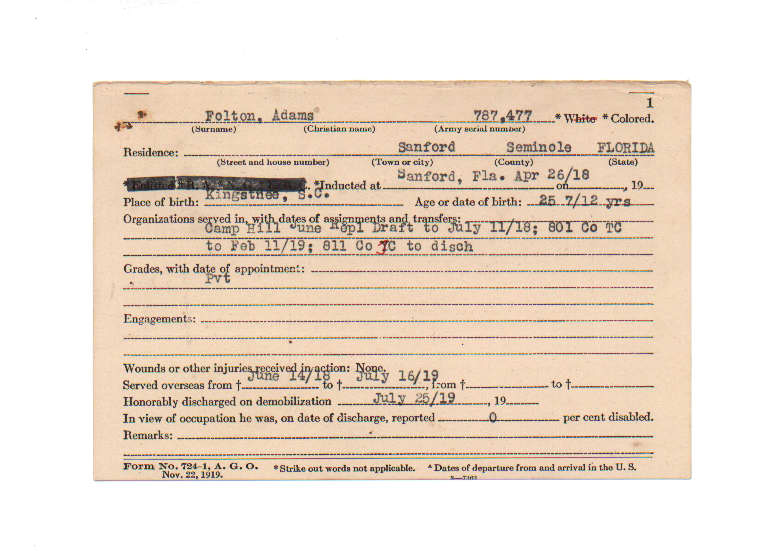 1
Folton, Adams 787,477 * White * Colored.
(Surname) (Christian name) (Army serial number)
Residence: Sanford Seminole FLORIDA
(Street and house number) (Town or city) (County) (State)
*Inducted at Sanford, Fla. Apr 26/18 on , 19
Place of birth: Kingstree, S.C. Age or date of birth: 25 7/12 yrs
Organizations served in, with dates of assignments and transfers:
Camp Hill June Repl Draft to July 11/18; 801 Co TC
to Feb 11/19; 811 Co TC to disch
Grades, with date of appointment:
Pvt
Engagements:
Wounds or other injuries received in action: None.
Served overseas from † June 14/18 to † July 16/19, from † to †
Honorably discharged on demobilization July 25/19, 19
In view of occupation he was, on date of discharge, reported 0 per cent disabled.
Remarks:
Form No. 724-1, A. G. O. *Strike out words not applicable. Dates of departure from and arrival in the U. S.
Nov. 22, 1919.